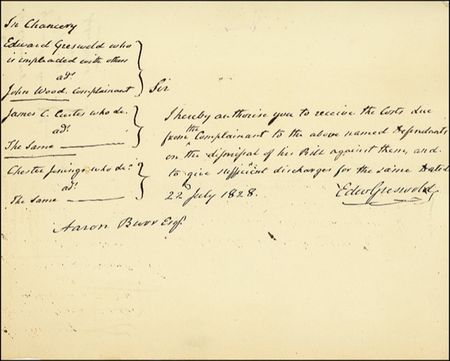 In Chancery
Edward Greswold who
is impleaded with others
ads
John Wood. Complainant
James C. Curtes who do.
ads
The Same
Chester Jenings who do.
ads
The Same
Sir
I hereby authorise you to receive the Costs due
from the Complainant to the above named Defendants
on the dismissal of his Bill against them, and
to give sufficient discharges for the same Dated
22 July 1828.
Edwd Greswold
Aaron Burr Esqr.